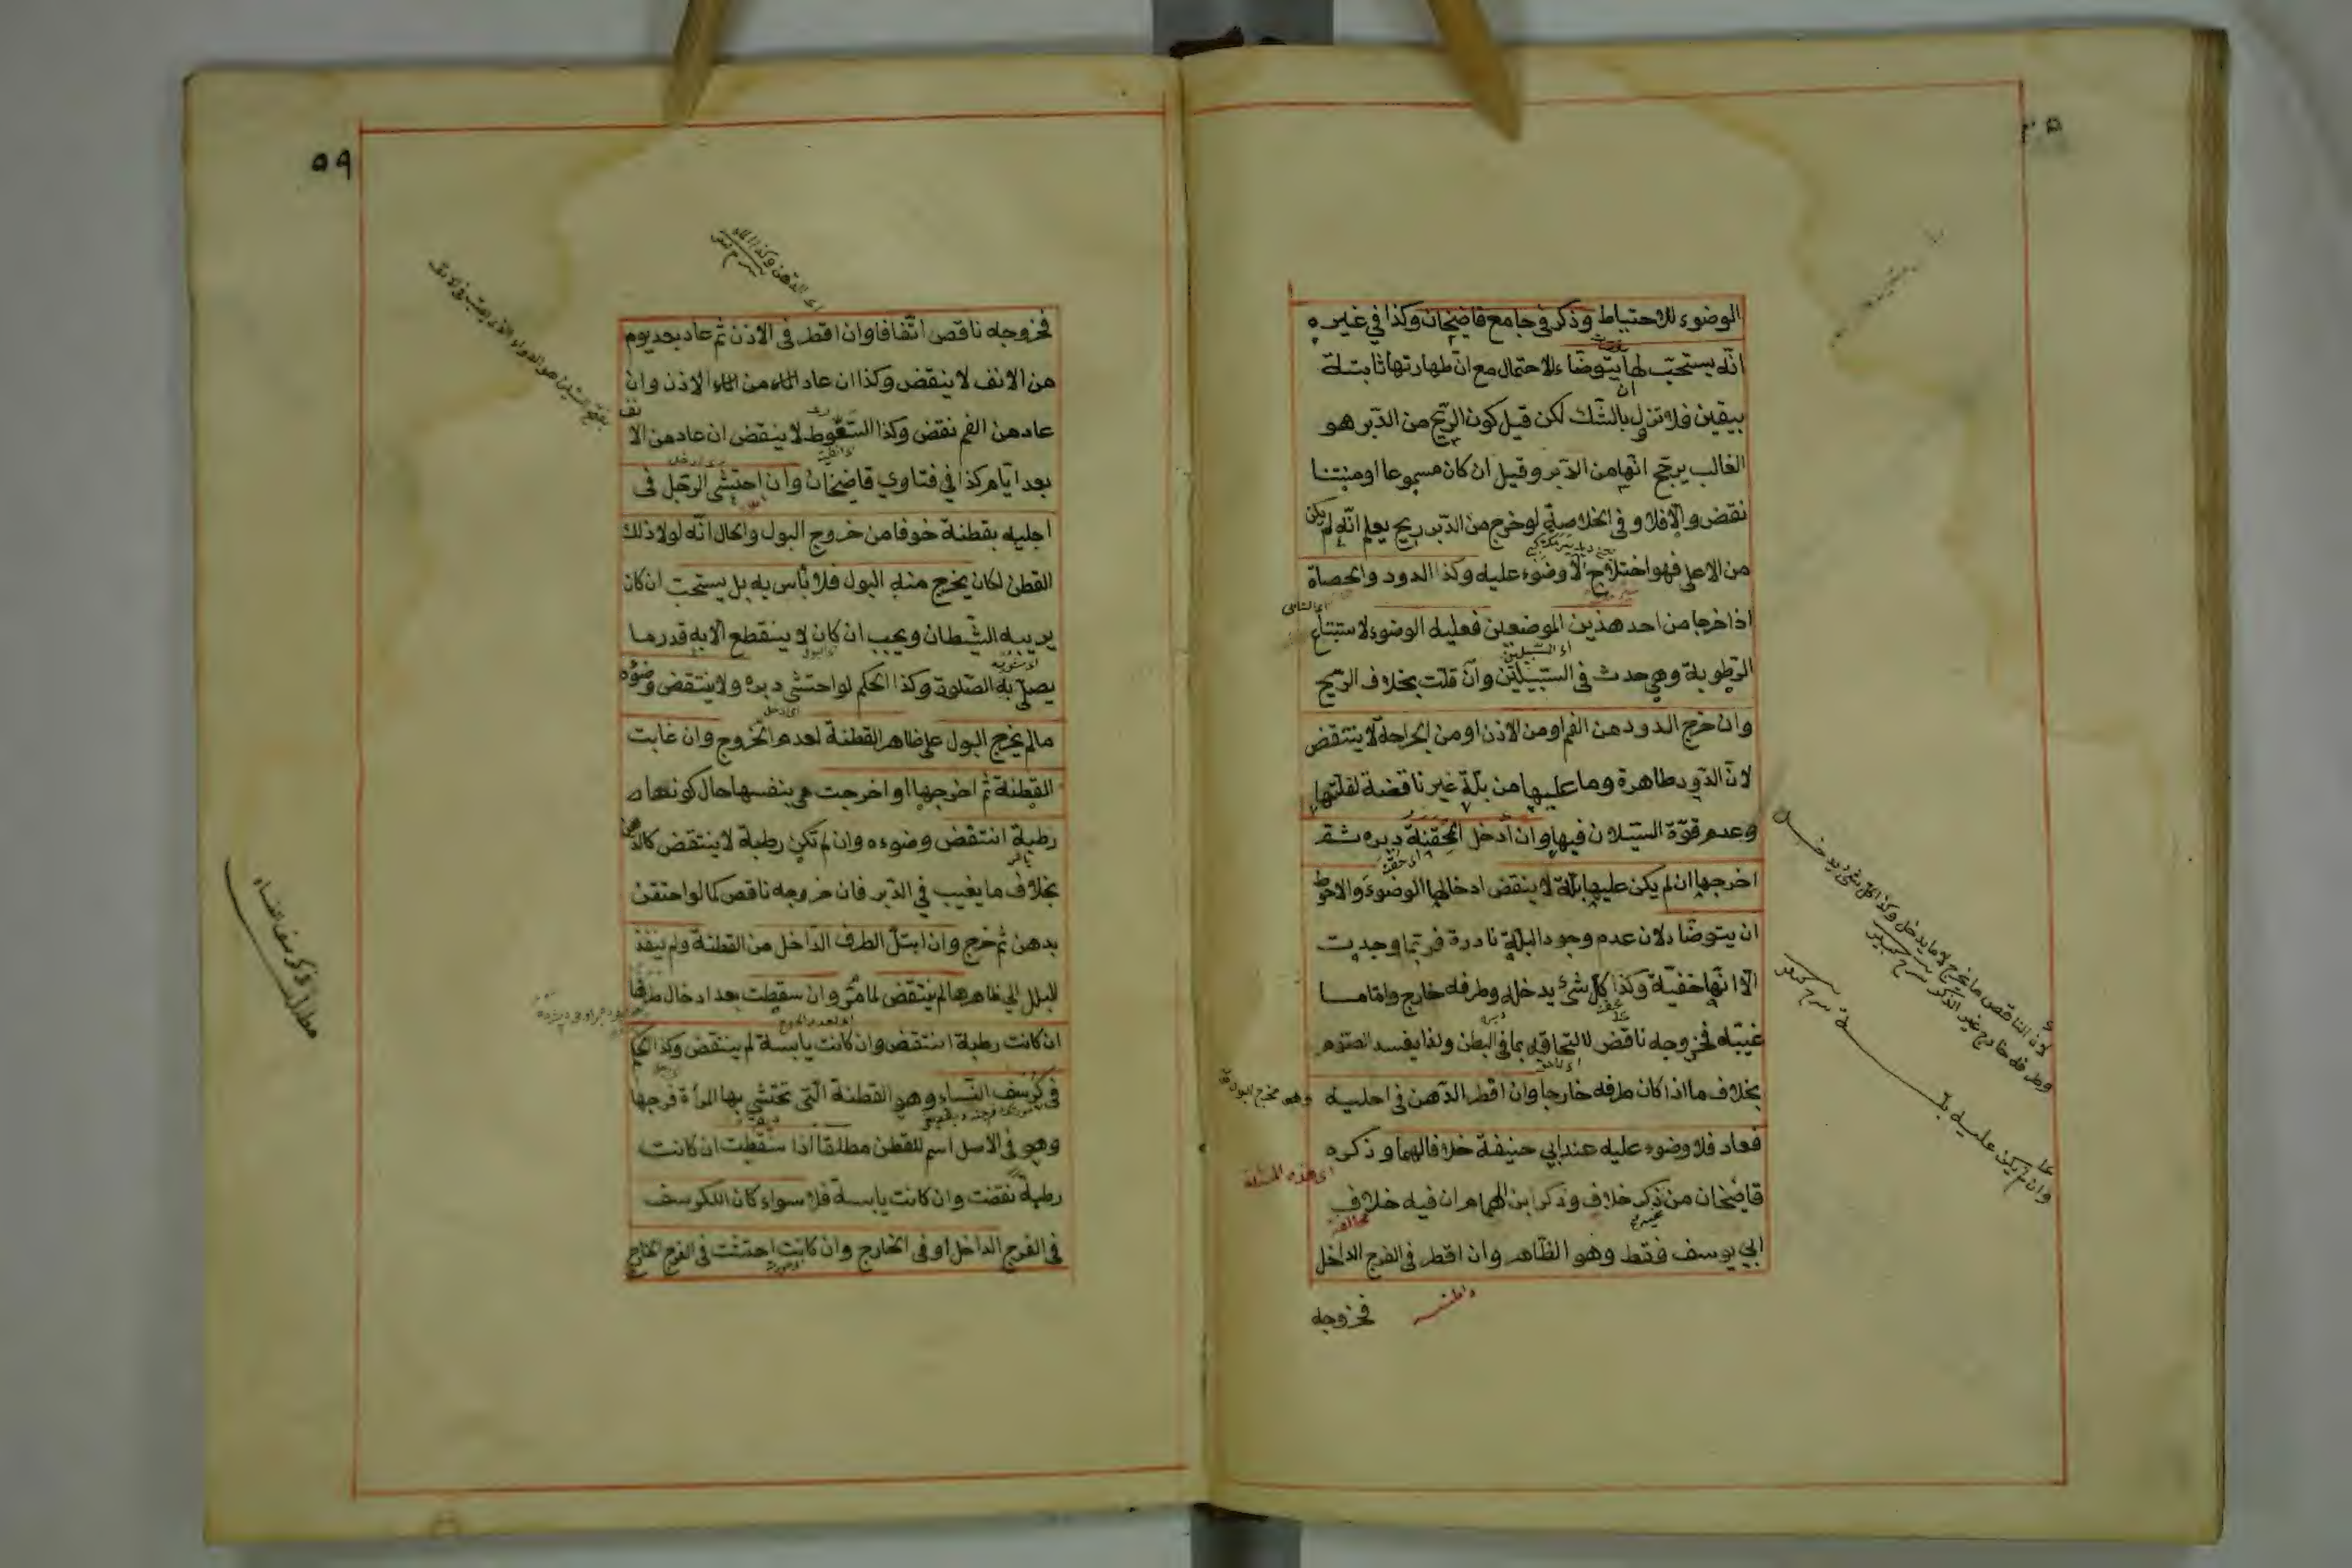 الوضوء للاحتياط وذكر في جامع قاضيخان وكذا في غيره
انّه يستحبّ لها ان يتوضّاء للاحتمال مع انّ طهارتها ثابتة
بيقين فلا تزول بالشّك لكن قيل كون الرّيح من الدّبر هو
الغالب يرجّح انّها من الدّبر وقيل ان كان مسموعا او منتنا
نقض والّا فلا وفي الخلاصة لو خرج من الدّبر ريح يعلم انّه لم يكن
من الاعلى فهو اختلاج لا وضوء عليه وكذا الدود والحصاة
اذا خرجا من احد هذين الموضعين فعليه الوضوء لاستتباع
اى السّبيلين
الرّطوبة وهي حدث في السّبيلين وان قلّت بخلاف الرّيح
وان خرج الدود من الفم او من الاذن او من الجراحة لا ينتقض
لانّ الدّود طاهرة وما عليها من بلّة غير ناقضة لقلّتها
وعدم قوّة السّيلان فيها وان أدخل المحقنة دبره ثمّ
اخرجها ان لم يكن عليها بلّة لا ينقض ادخالها الوضوء والاحوط
ان يتوضّا لان عدم وجود البلّة نادرة فربّما وجدت
الّا انّها خفيّة وكذا كلّ شئ يدخله وطرفه خارج وامّا ما
غيّبه فخروجه ناقض لالتحاقه بما في البطن ولذا يفسد الصّوم
بخلاف ما اذا كان طرفه خارجا وان اقطر الدّهن في احليه
وهو مخرج البول
فعاد فلا وضوء عليه عند ابي حنيفة خلافا لهما وذكره
اى هذه المسئلة
قاضيخان من ذكر خلاف وذكر ابن الهمام ان فيه خلاف
ابي يوسف فقط وهو الظّاهر وان اقطر في الفرج الداخل
فخروجه
لانّ الناقض ما يخرج لا ما يدخل وكذا كلّ شئ يدخله
وطرفه خارج غير الذكر شرح كبير
وان لم يكن عليه بلّة شرح كبير
٥٩
اى الدّهن وكذا الماء
بفتح السّين هو الدواء الّذى يصبّ في الانف
فخروجه ناقض اتّفاقا وان اقطر في الاذن ثمّ عاد بعد يوم
من الانف لا ينقض وكذا ان عاد الماء من الماء الاذن وان
عاد من الفم نقض وكذا السّعوط لا ينقض ان عاد من الانف
بعد ايّام كذا في فتاوي قاضيخان وان احتشى الرجل في
احليه بقطنة خوفا من خروج البول والحال انّه لولا ذلك
القطن لكان يخرج منه البول فلا بأس به بل يستحبّ ان كان
يريبه الشّيطان ويجب ان كان لا ينقطع الّا به قدر ما
يصلّى به الصّلوة وكذا الحكم لو احتشى دبره ولا ينتقض وضوءه
ما لم يخرج البول على ظاهر القطنة لعدم الخروج وان غابت
القطنة ثمّ اخرجها او اخرجت هي بنفسها حال كونها
رطبة انتقض وضوءه وان لم تكن رطبة لا ينتقض كالدّهن
بخلاف ما يغيب في الدّبر فان خروجه ناقض كما لو احتقن
بدهن ثمّ خرج وان ابتلّ الطرف الدّاخل من القطنة ولم ينفذ
البلل الى ظاهرها لم ينتقض لما مرّ وان سقطت بعد ادخال طرفها
ان كانت رطبة انتقض وان كانت يابسة لم ينتقض وكذا الحكم
في كرسف النّساء وهو القطنة الّتي تحتشي بها المرأة فرجها
وهو في الاصل اسم للقطن مطلقا اذا سقطت ان كانت
رطبة نقضت وان كانت يابسة فلا سواء كان الكرسف
في الفرج الداخل او في الخارج وان كانت احتشت في الفرج الخارج
مطلب في كرسف النساء